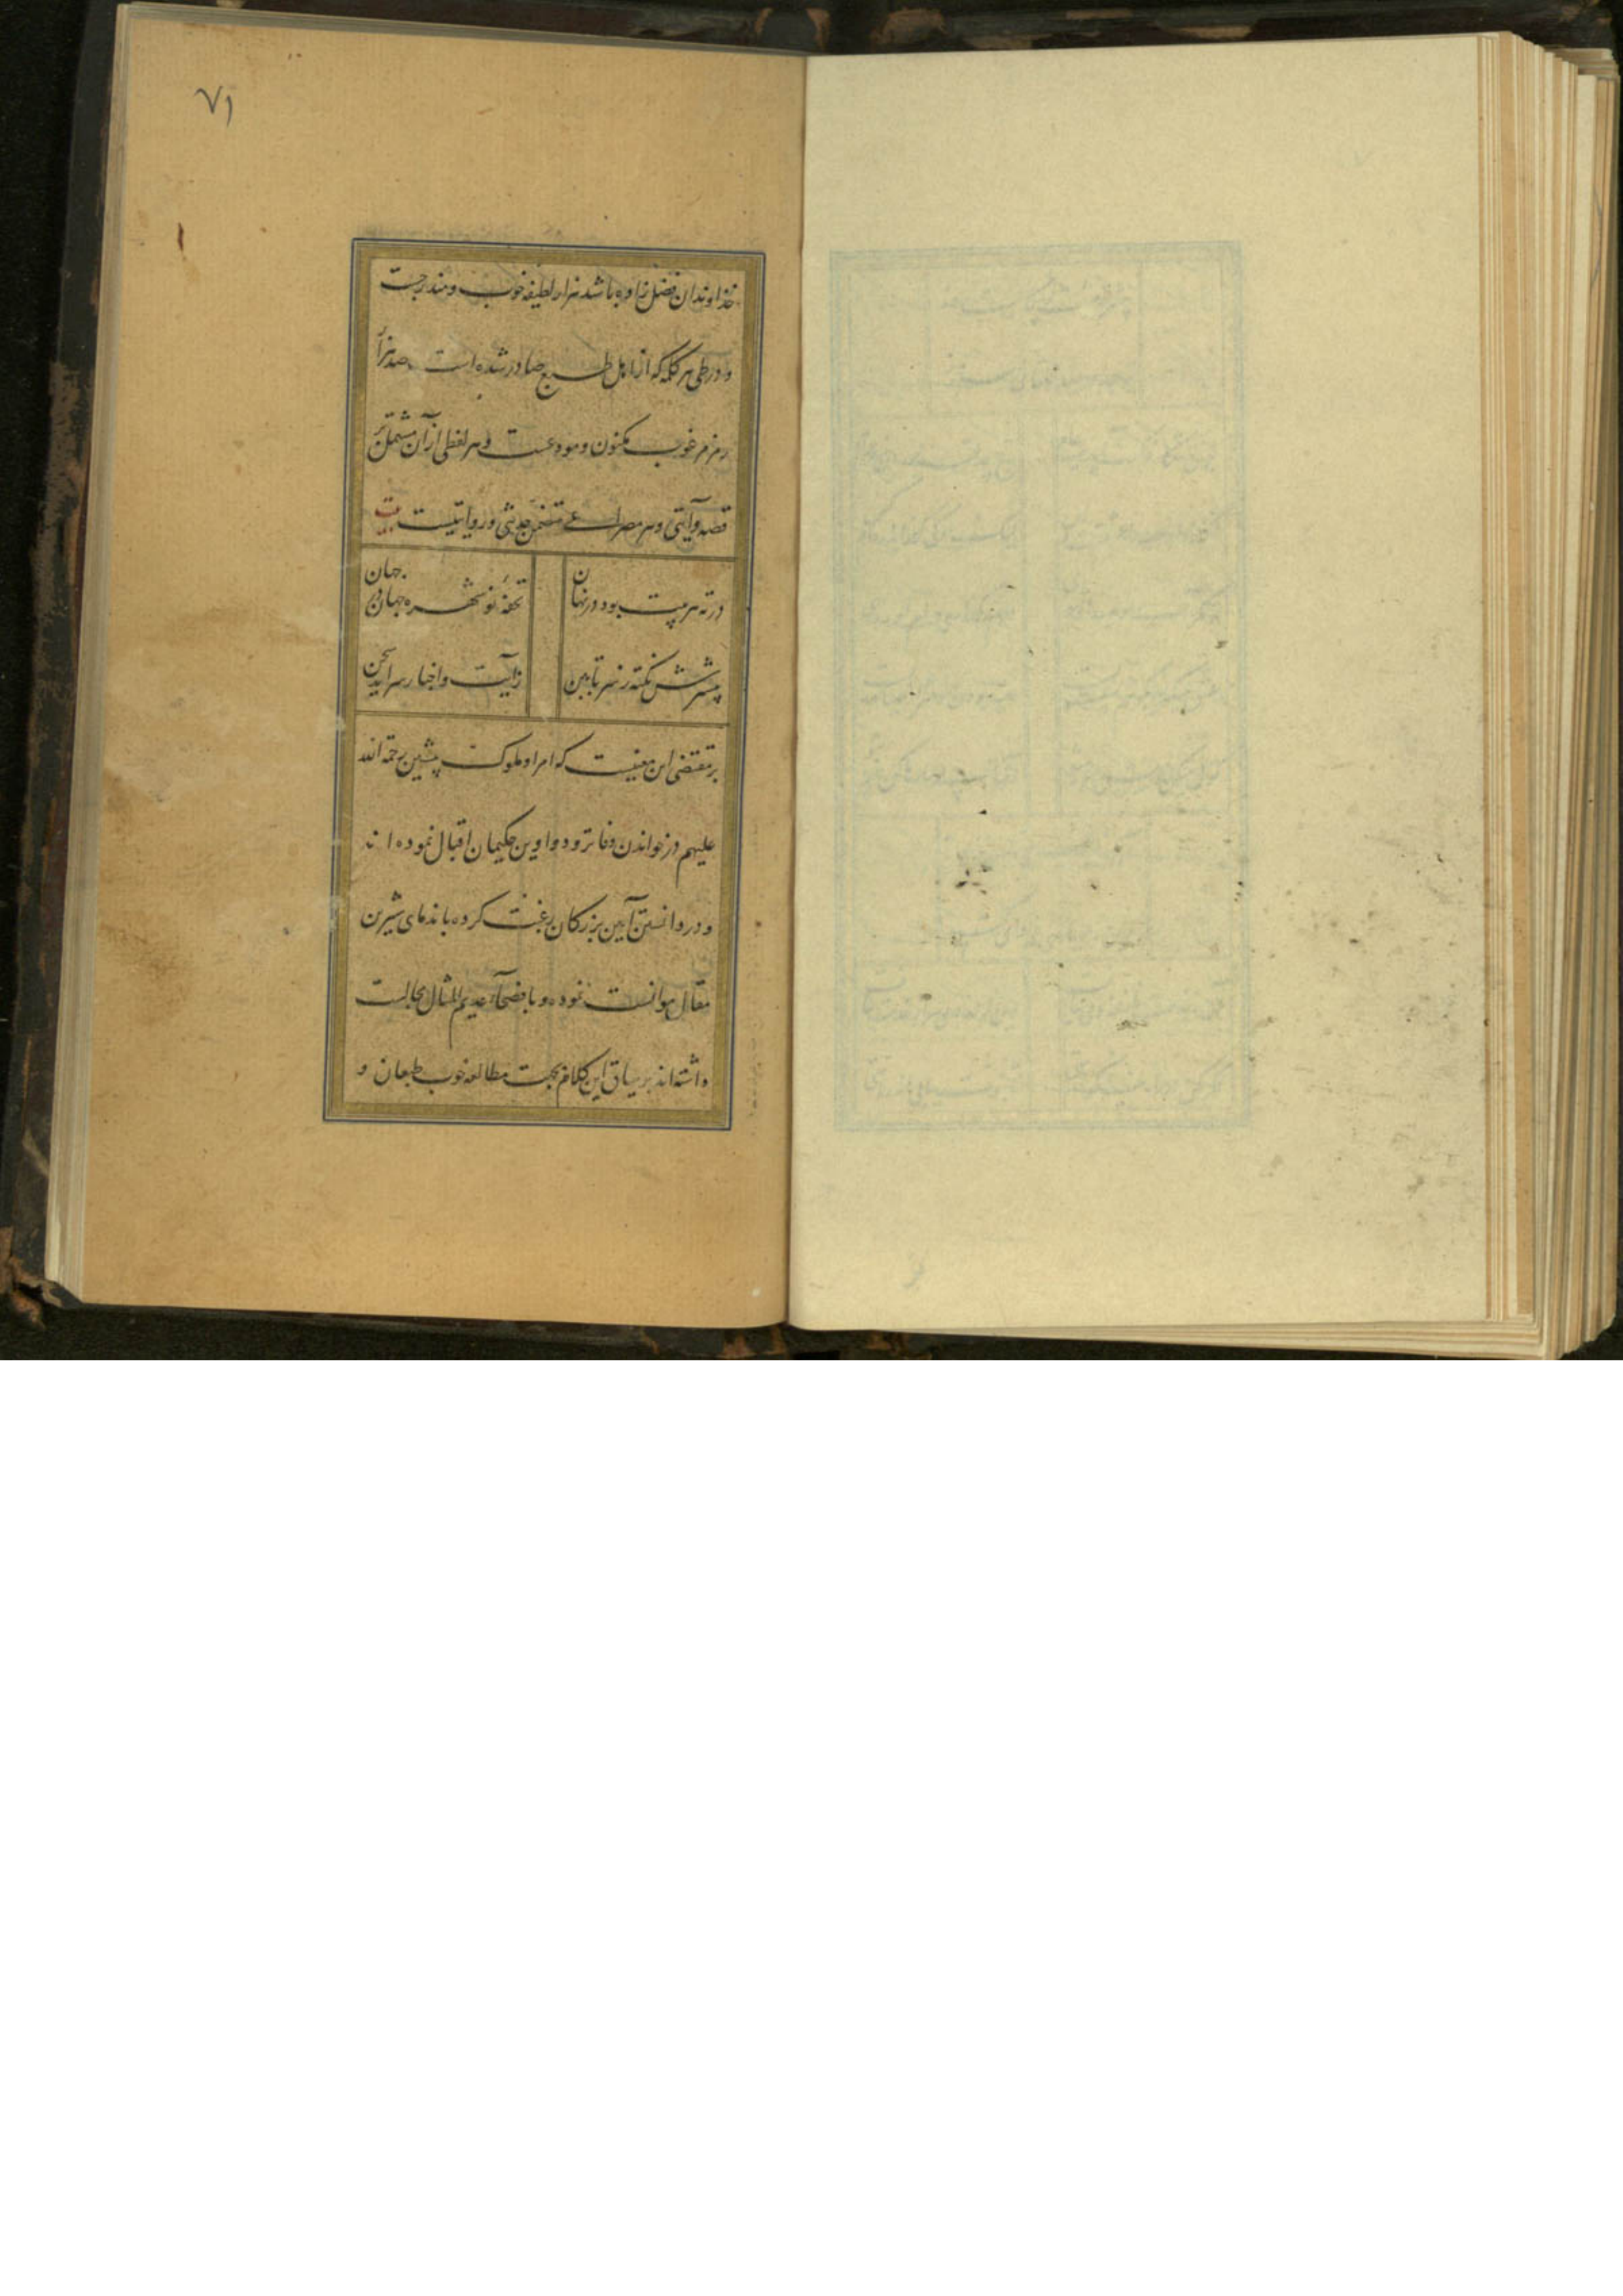 ۷۱
خداوندان فضل زاده باشد هزار لطیفه خوب و مندرجست
و در طی هر کلمه که از اهل طبع صادر شده است صد هزار
رمز مرغوب مکنون و مودعست و هر لفظی از آن مشتمل بر
قصه و آیتی و هر مصراعی متضمن حدیثی و روایتیست بیت
در ته هر بیت بود در نهان تحفهٔ نو شهرهٔ جهان در جهان
نکته ز سر تا ببن زآیت و اخبار سراید سخن
بر مقتضی این معنیست که امرا و ملوک پیشین رحمة الله
علیهم در خواندن دفاتر و دواوین حکیمان اقبال نموده اند
و در دانستن آیین بزرکان رغبت کرده با ندمای شیرین
مقال موانست نموده و با فصحآء عدیم المثال مجالست
داشته اند بر سیاق این کلام بجهت مطالعه خوب طبعان و